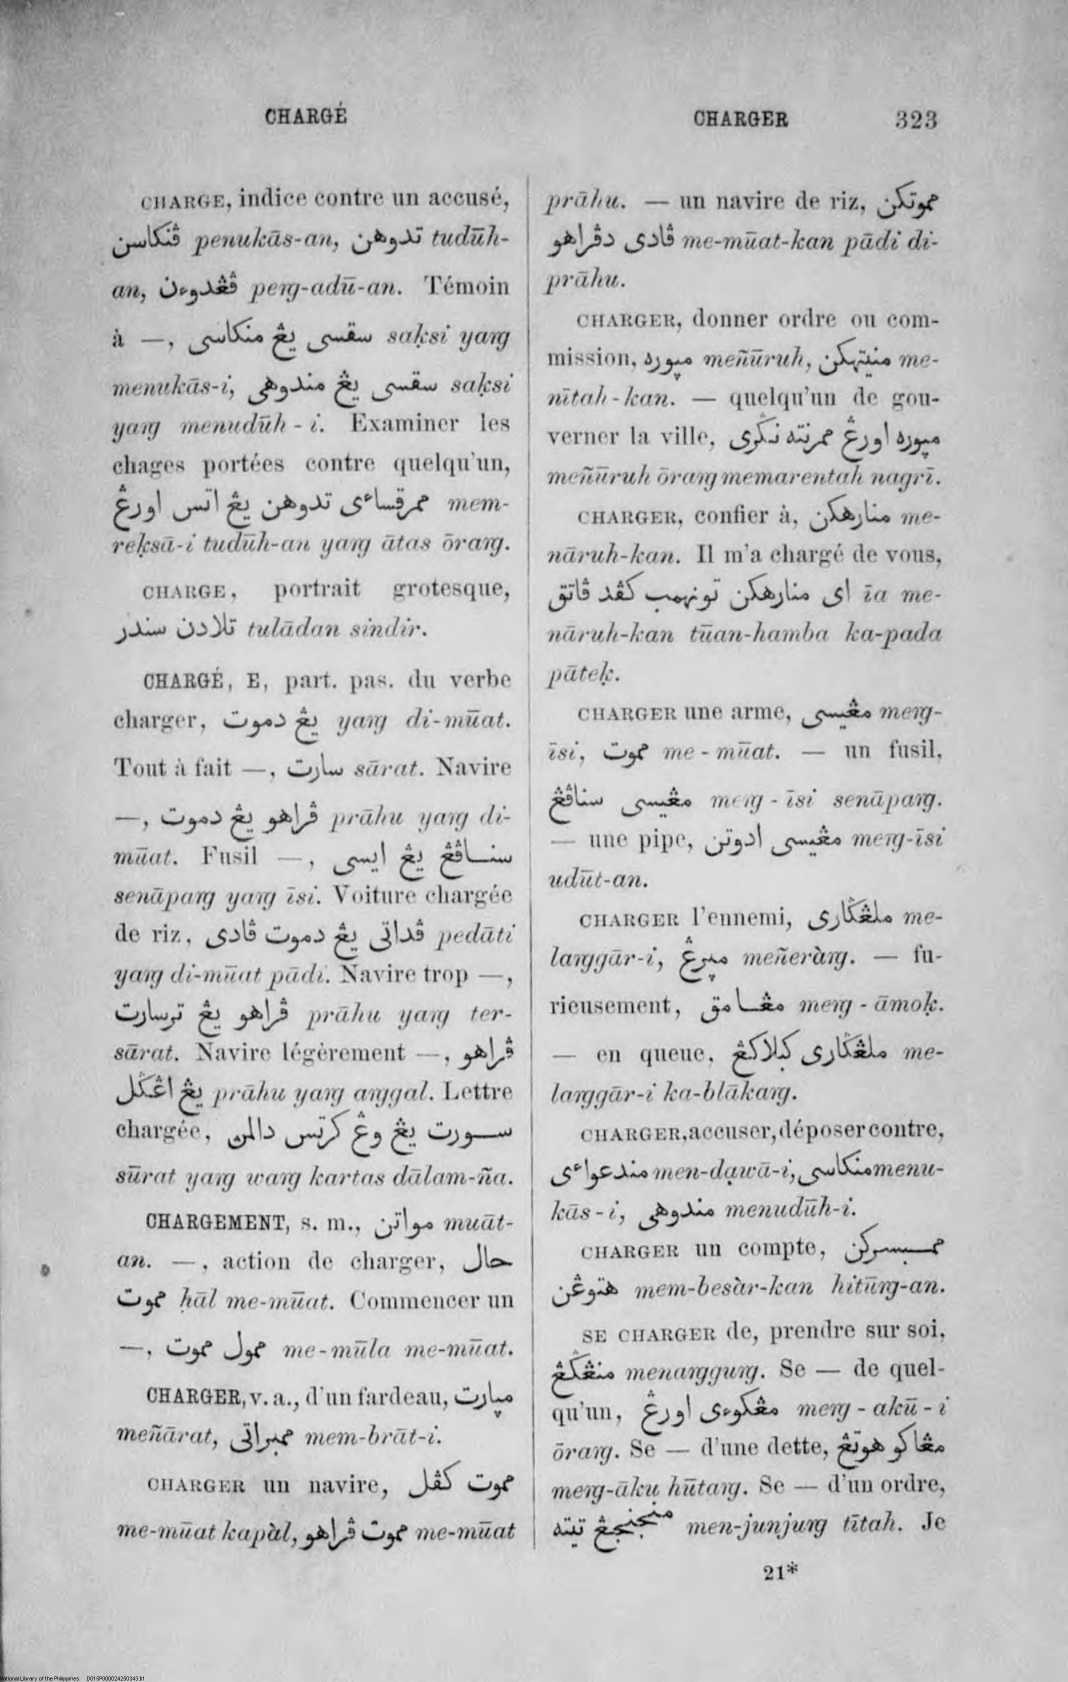 CHARGÉ
CHARGER 323
CHARGE, indice contre un accusé,
ڤنكاسن penukās-an, تدوهن tudūh-
an, ڤڠدوءن peꞑg-adū-an. Témoin
à —, سقسى يڠ منكاسى saḳsi yaꞑg
menukās-i, سقسى يڠ مندوهى saḳsi
yaꞑg menudūh-i. Examiner les
chages portées contre quelqu'un,
ممرقساءى تدوهن يڠ اتس اورڠ mem-
reḳsā-i tudūh-an yaꞑg ātas ōraꞑg.
CHARGE, portrait grotesque,
تلادن سندر tulādan sindir.
CHARGÉ, E, part. pas. du verbe
charger, يڠ دموت yaꞑg di-mūat.
Tout à fait —, سارت sārat. Navire
—, ڤراهو يڠ دموت prāhu yaꞑg di-
mūat. Fusil —, سناڤڠ يڠ ايسى
senāpaꞑg yaꞑg īsi. Voiture chargée
de riz, ڤداتى يڠ دموت ڤادى pedāti
yaꞑg di-mūat pādi. Navire trop —,
ڤراهو يڠ ترسارت prāhu yaꞑg ter-
sārat. Navire légèrement —, ڤراهو
يڠ اڠݢل prāhu yaꞑg aꞑggal. Lettre
chargée, سورت يڠ وڠ كرتس دالمن
sūrat yaꞑg waꞑg kartas dālam-ña.
CHARGEMENT, s. m., مواتن muāt-
an. —, action de charger, حال
مموت ḥāl me-mūat. Commencer un
—, ممول مموت me-mūla me-mūat.
CHARGER, v. a., d'un fardeau, مڽارت
meñārat, ممبراتى mem-brāt-i.
CHARGER un navire, مموت كڤل
me-mūat kapàl, مموت ڤراهو me-mūat
prāhu. — un navire de riz, مموتكن
ڤادى دڤراهو me-mūat-kan pādi di-
prāhu.
CHARGER, donner ordre ou com-
mission, مڽوره meñūruh, منيتهكن me-
nītah-kan. — quelqu'un de gou-
verner la ville, مڽوره اورڠ ممرنته نݢرى
meñūruh ōraꞑg memarentah nagrī.
CHARGER, confier à, منارهكن me-
nāruh-kan. Il m'a chargé de vous,
اى منارهكن تونهمب كڤد ڤاتق īa me-
nāruh-kan tūan-hamba ka-pada
pāteḳ.
CHARGER une arme, مڠيسى meꞑg-
īsi, مموت me-mūat. — un fusil,
مڠيسى سناڤڠ meꞑg-īsi senāpaꞑg.
— une pipe, مڠيسى ادوتن meꞑg-īsi
udūt-an.
CHARGER l'ennemi, ملڠݢارى me-
laꞑggār-i, مڽرڠ meñeràꞑg. — fu-
rieusement, مڠامق meꞑg-āmoḳ.
— en queue, ملڠݢارى كبلاكڠ me-
laꞑggār-i ka-blākaꞑg.
CHARGER, accuser, déposer contre,
مندعواءى men-dạwā-i, منكاسى menu-
kās-i, مندوهى menudūh-i.
CHARGER un compte, ممبسركن
هتوڠن mem-besàr-kan hitūꞑg-an.
SE CHARGER de, prendre sur soi,
منڠݢڠ menaꞑgguꞑg. Se — de quel-
qu'un, مڠكوءى اورڠ meꞑg-akū-i
ōraꞑg. Se — d'une dette, مڠاكو هوتڠ
meꞑg-āku hūtaꞑg. Se — d'un ordre,
منجنجڠ تيته men-junjuꞑg tītah. Je
21*
National Library of the Philippines